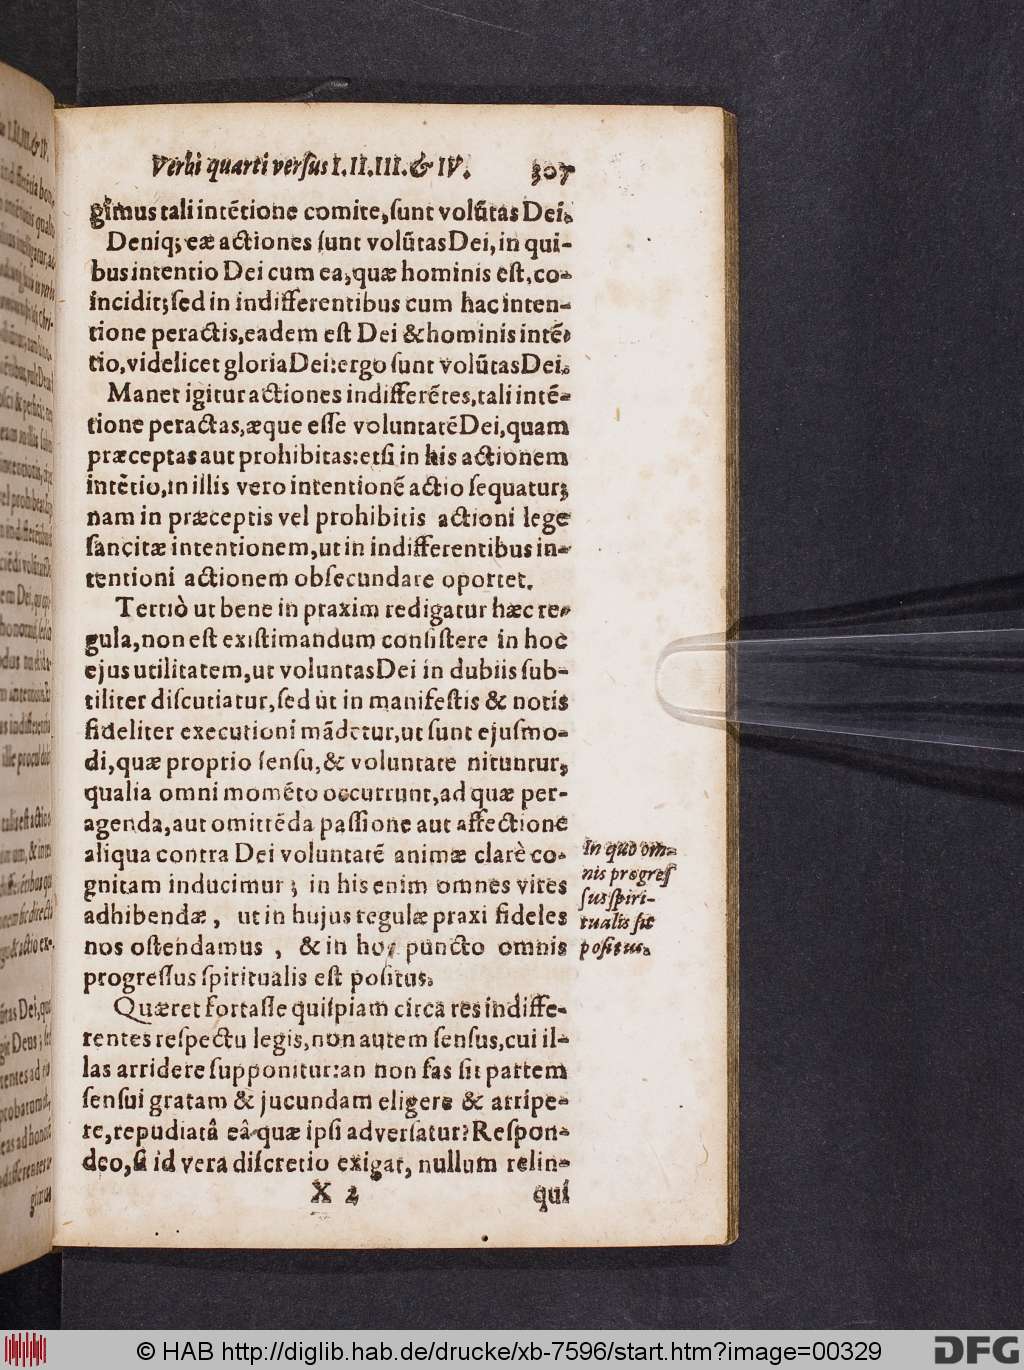 Verbi quarti versus I.II.III.& IV. 307
gimus tali intẽtione comite, sunt volũtas Dei.
Deniq; eæ actiones sunt volũtas Dei, in qui-
bus intentio Dei cum ea, quæ hominis est, co-
incidit; sed in indifferentibus cum hac inten-
tione peractis, eadem est Dei & hominis intẽ-
tio, videlicet gloria Dei: ergo sunt volũtas Dei.
Manet igitur actiones indifferẽtes, tali intẽ-
tione peractas, æque esse voluntatẽ Dei, quam
præceptas aut prohibitas: etsi in his actionem
intẽtio, in illis vero intentionẽ actio sequatur;
nam in præceptis vel prohibitis actioni lege
sancitæ intentionem, ut in indifferentibus in-
tentioni actionem obsecundare oportet.
Tertiò ut bene in praxim redigatur hæc re-
gula, non est existimandum consistere in hoc
ejus utilitatem, ut voluntas Dei in dubiis sub-
tiliter discutiatur, sed ut in manifestis & notis
fideliter executioni mãdetur, ut sunt ejusmo-
di, quæ proprio sensu, & voluntate nituntur,
qualia omni momẽto occurrunt, ad quæ per-
agenda, aut omittẽda passione aut affectione
aliqua contra Dei voluntatẽ animæ clarè co-
gnitam inducimur; in his enim omnes vires
adhibendæ, ut in hujus regulæ praxi fideles
nos ostendamus, & in hoc puncto omnis
progressus spiritualis est positus.
In quo om-
nis progres
sus spiri-
tualis sit
positus.
Quæret fortasse quispiam circa res indiffe-
rentes respectu legis, non autem sensus, cui il-
las arridere supponitur: an non fas sit partem
sensui gratam & jucundam eligere & arripe-
re, repudiatâ eâ quæ ipsi adversatur? Respon-
deo, si id vera discretio exigat, nullum relin-
X 2 qui
© HAB http://diglib.hab.de/drucke/xb-7596/start.htm?image=00329
DFG